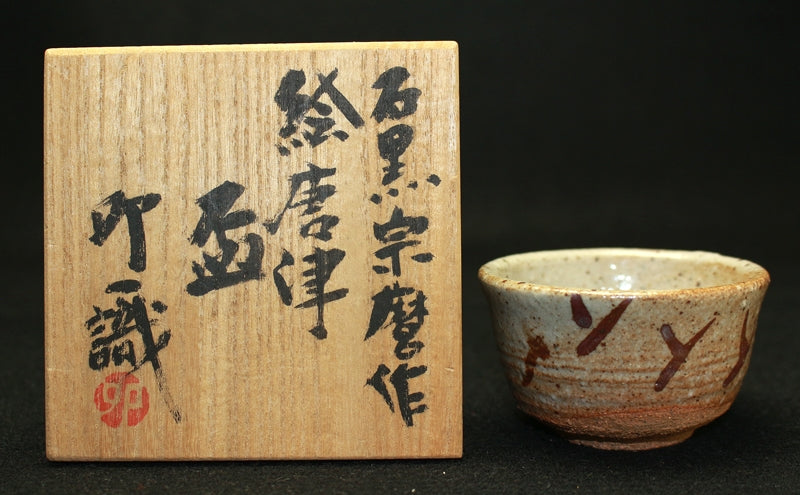 石黒宗麿作
絵唐津
盃
卯一識
卯